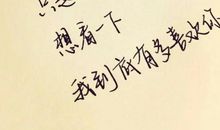 想看一下
我到底有多喜欢你